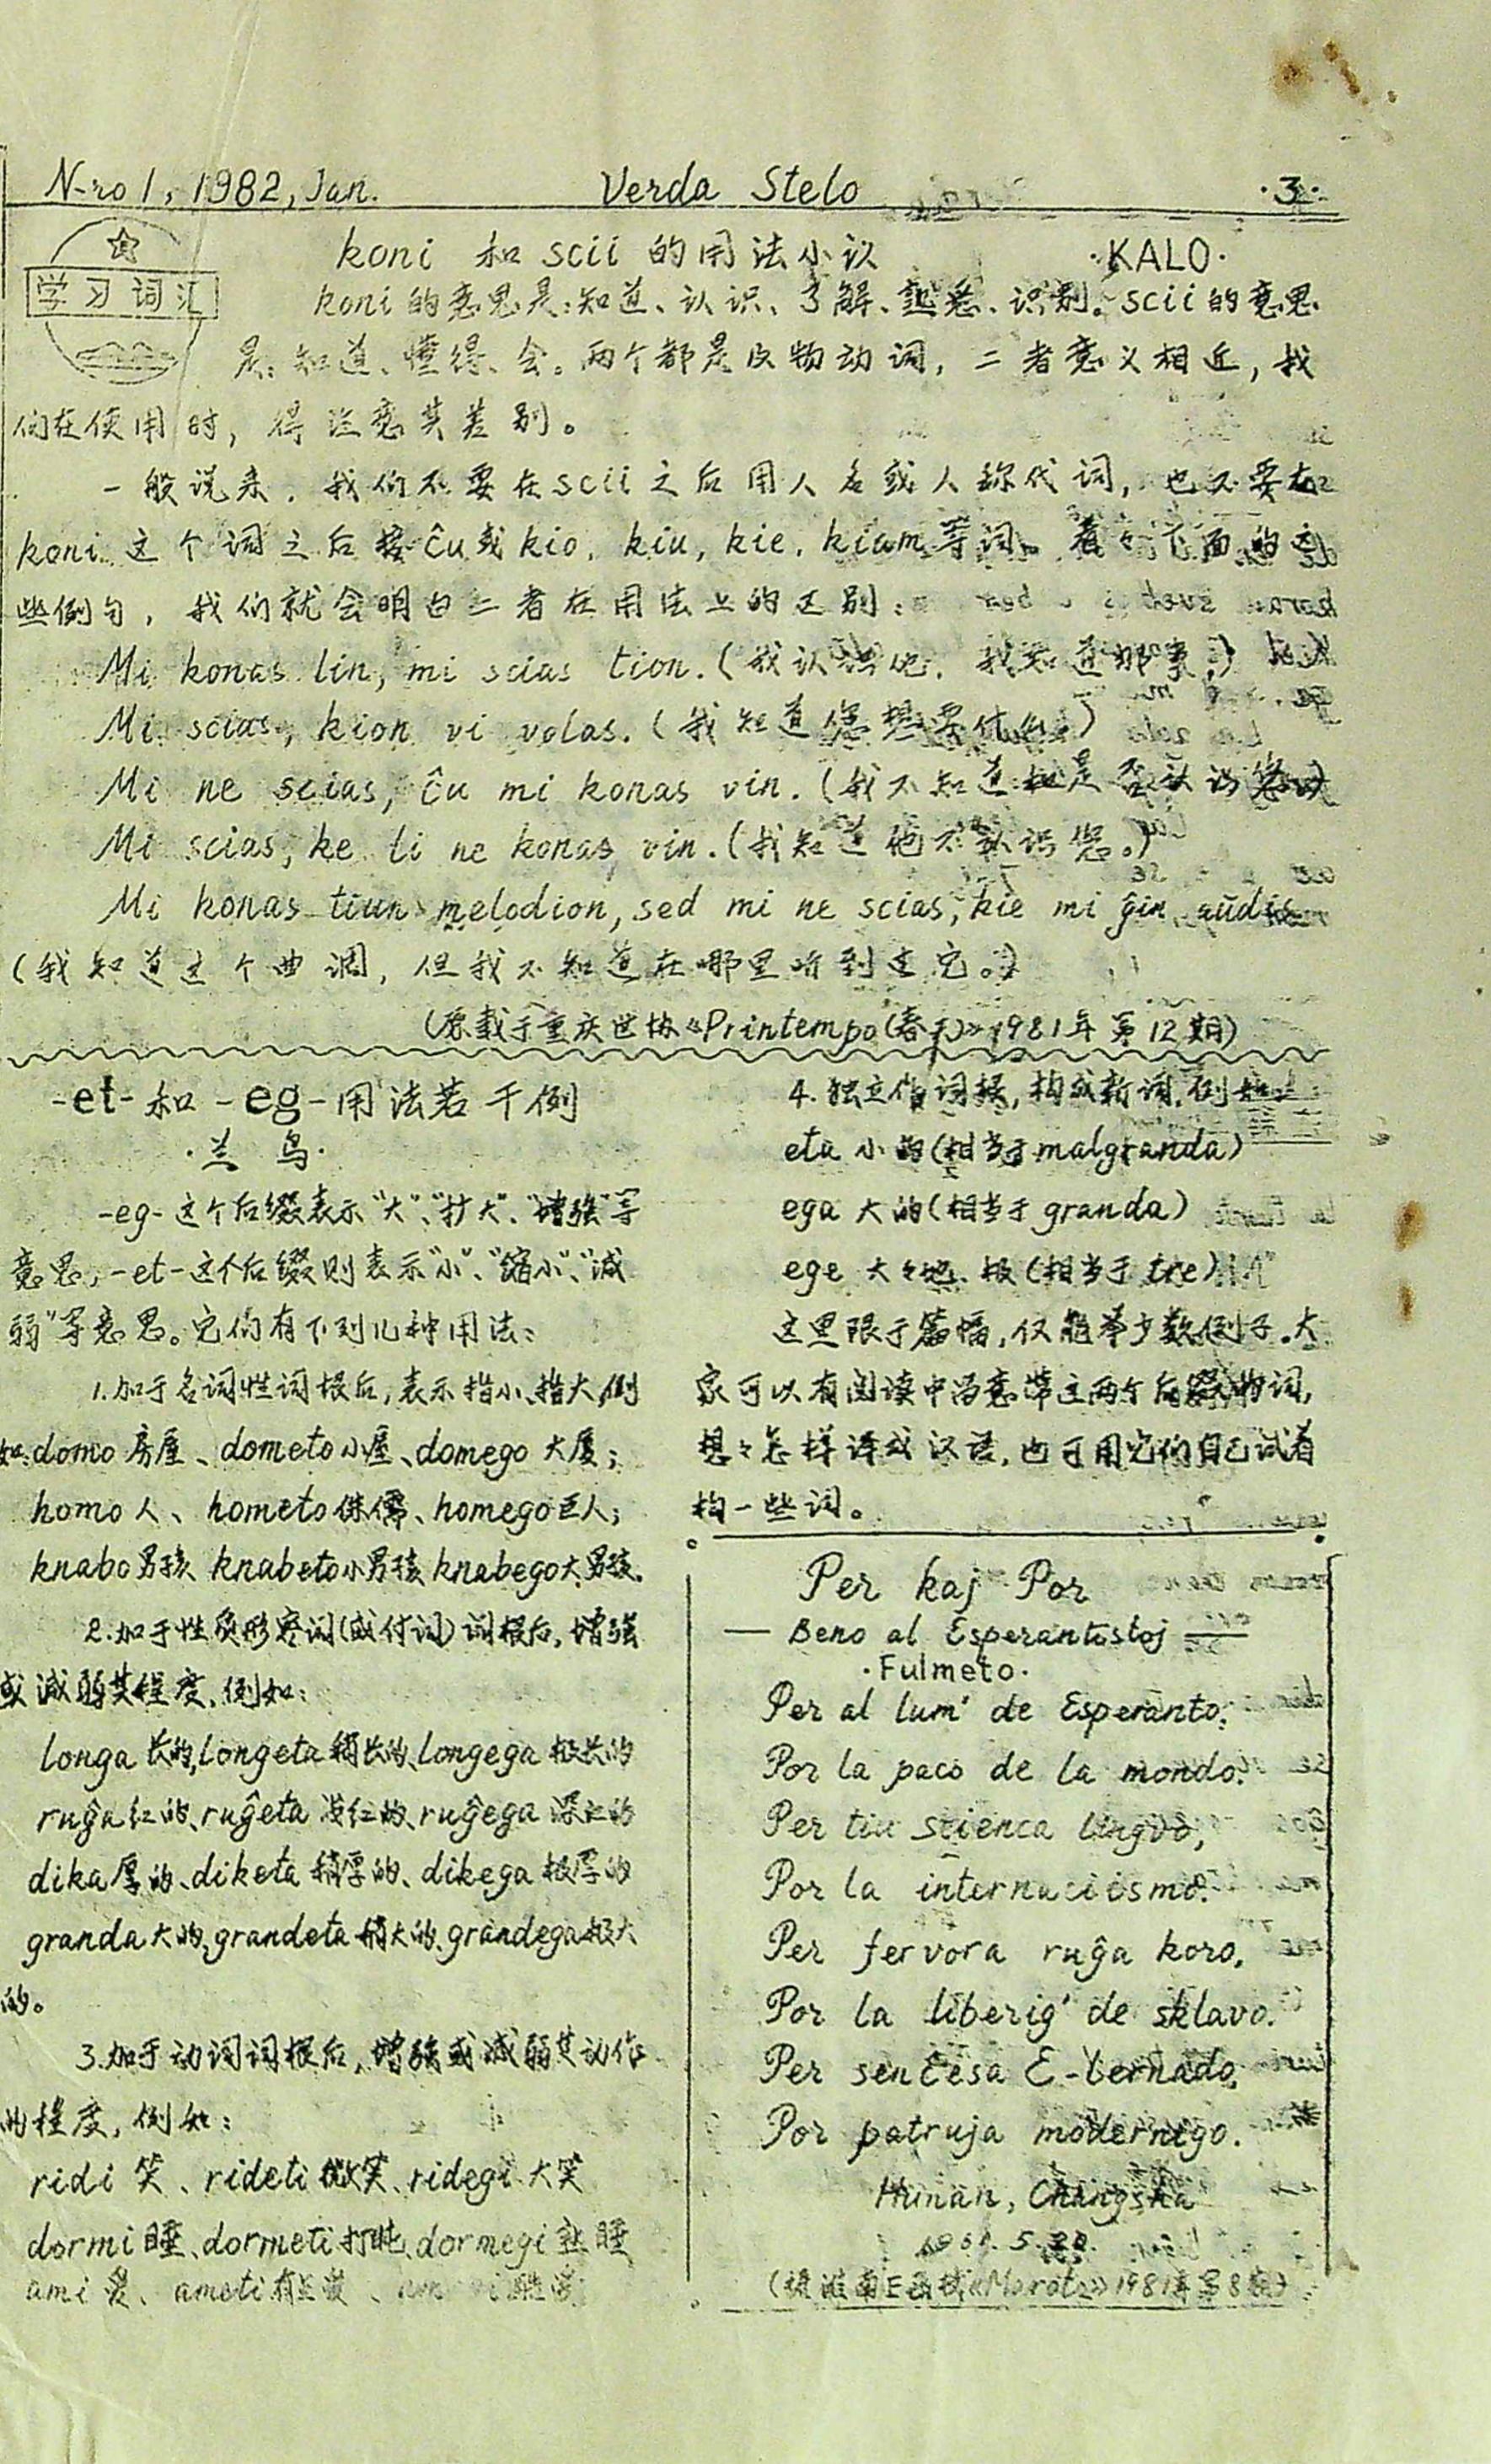 N-ro 1, 1982, Jan.
Verda Stelo
·3·
学习词汇
koni 和 scii 的用法小议
·KALO·
koni 的意思是:知道、认识、了解、熟悉、识别。scii 的意思
是:知道、懂得、会。两个都是及物动词,二者意义相近,我
们在使用时,得注意其差别。
一般说来,我们不要在scii之后用人名或人称代词,也不要在
koni 这个词之后接ĉu或kio, kiu, kie, kiam等词。看々下面的这
些例句,我们就会明白二者在用法上的区别:
Mi konas lin, mi scias tion.(我认识他,我知道那事。)
Mi scias, kion vi volas.(我知道您想要什么。)
Mi ne scias, ĉu mi konas vin.(我不知道我是否认识您。)
Mi scias, ke li ne konas vin.(我知道他不认识您。)
Mi konas tiun melodion, sed mi ne scias, kie mi ĝin aŭdis
(我知道这个曲调,但我不知道在哪里听到过它。)
(原载于重庆世协《Printempo(春天)》1981年第12期)
-et- 和 -eg- 用法若干例
·兰鸟·
-eg- 这个后缀表示“大”、“扩大”、“增强”等
意思,-et-这个后缀则表示“小”、“缩小”、“减
弱”等意思。它们有下列几种用法:
1.加于名词性词根后,表示指小、指大,例
如:domo 房屋、dometo小屋、domego 大厦;
homo 人、hometo侏儒、homego巨人;
knabo男孩 knabeto小男孩 knabego大男孩.
2.加于性质形容词(或付词)词根后,增强
或减弱其程度,例如:
longa 长的,longeta稍长的,longega极长的
ruĝa红的、ruĝeta浅红的、ruĝega深红的
dika厚的、diketa稍厚的、dikega极厚的
granda大的,grandeta稍大的,grandega极大
的。
3.加于动词词根后,增强或减弱其动作
的程度,例如:
ridi 笑、rideti 微笑、ridegi 大笑
dormi 睡、dormeti打盹、dormegi熟睡
ami 爱、ameti
4.独立作词根,构成新词,例如:
eta 小的(相当于malgranda)
ega 大的(相当于granda)
ege 大々地、极(相当于tre)
这里限于篇幅,仅能举少数例子。大
家可以有阅读中留意带这两个后缀的词,
想々怎样译成汉语,也可用它们自己试着
构一些词。
Per kaj Por
— Beno al Esperantistoj —
·Fulmeto·
Per al lum' de Esperanto,
Por la paco de la mondo.
Per tiu scienca lingvo,
Por la internaciismo.
Per fervora ruĝa koro,
Por la liberig' de sklavo.
Per senĉesa E-lernado,
Por patruja modernigo.
Hunan, Changsha
5.20.
1981年第8期)